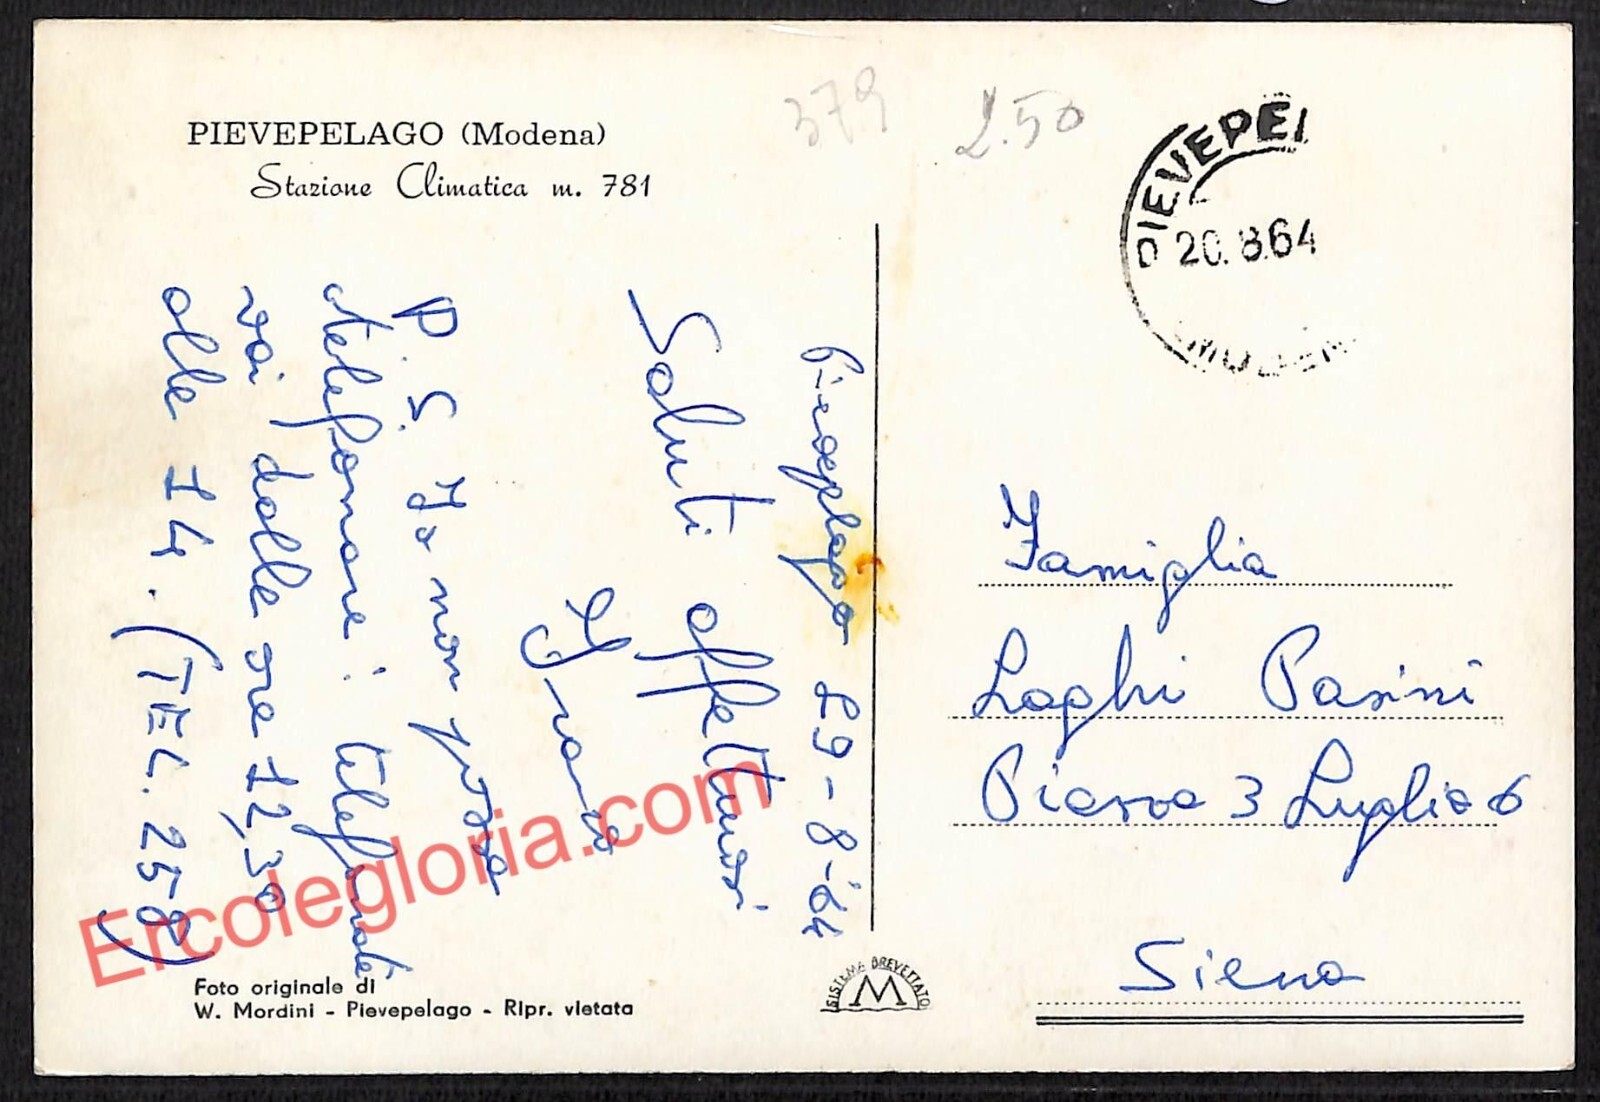 PIEVEPELAGO (Modena)
Stazione Climatica m. 781
379
2.50
PIEVEPEL
20.8.64
Pievepelago 19-8-'64
Saluti affettuosi
P.S. Io non posso
telefonare: telefonate
voi dalle ore 12,30
alle 14. (TEL. 258)
Famiglia
Laghi Pasini
Piazza 3 Luglio 6
Siena
Foto originale di
W. Mordini - Pievepelago - Ripr. vietata
SISTEMA BREVETTATO
M
Ercolegloria.com